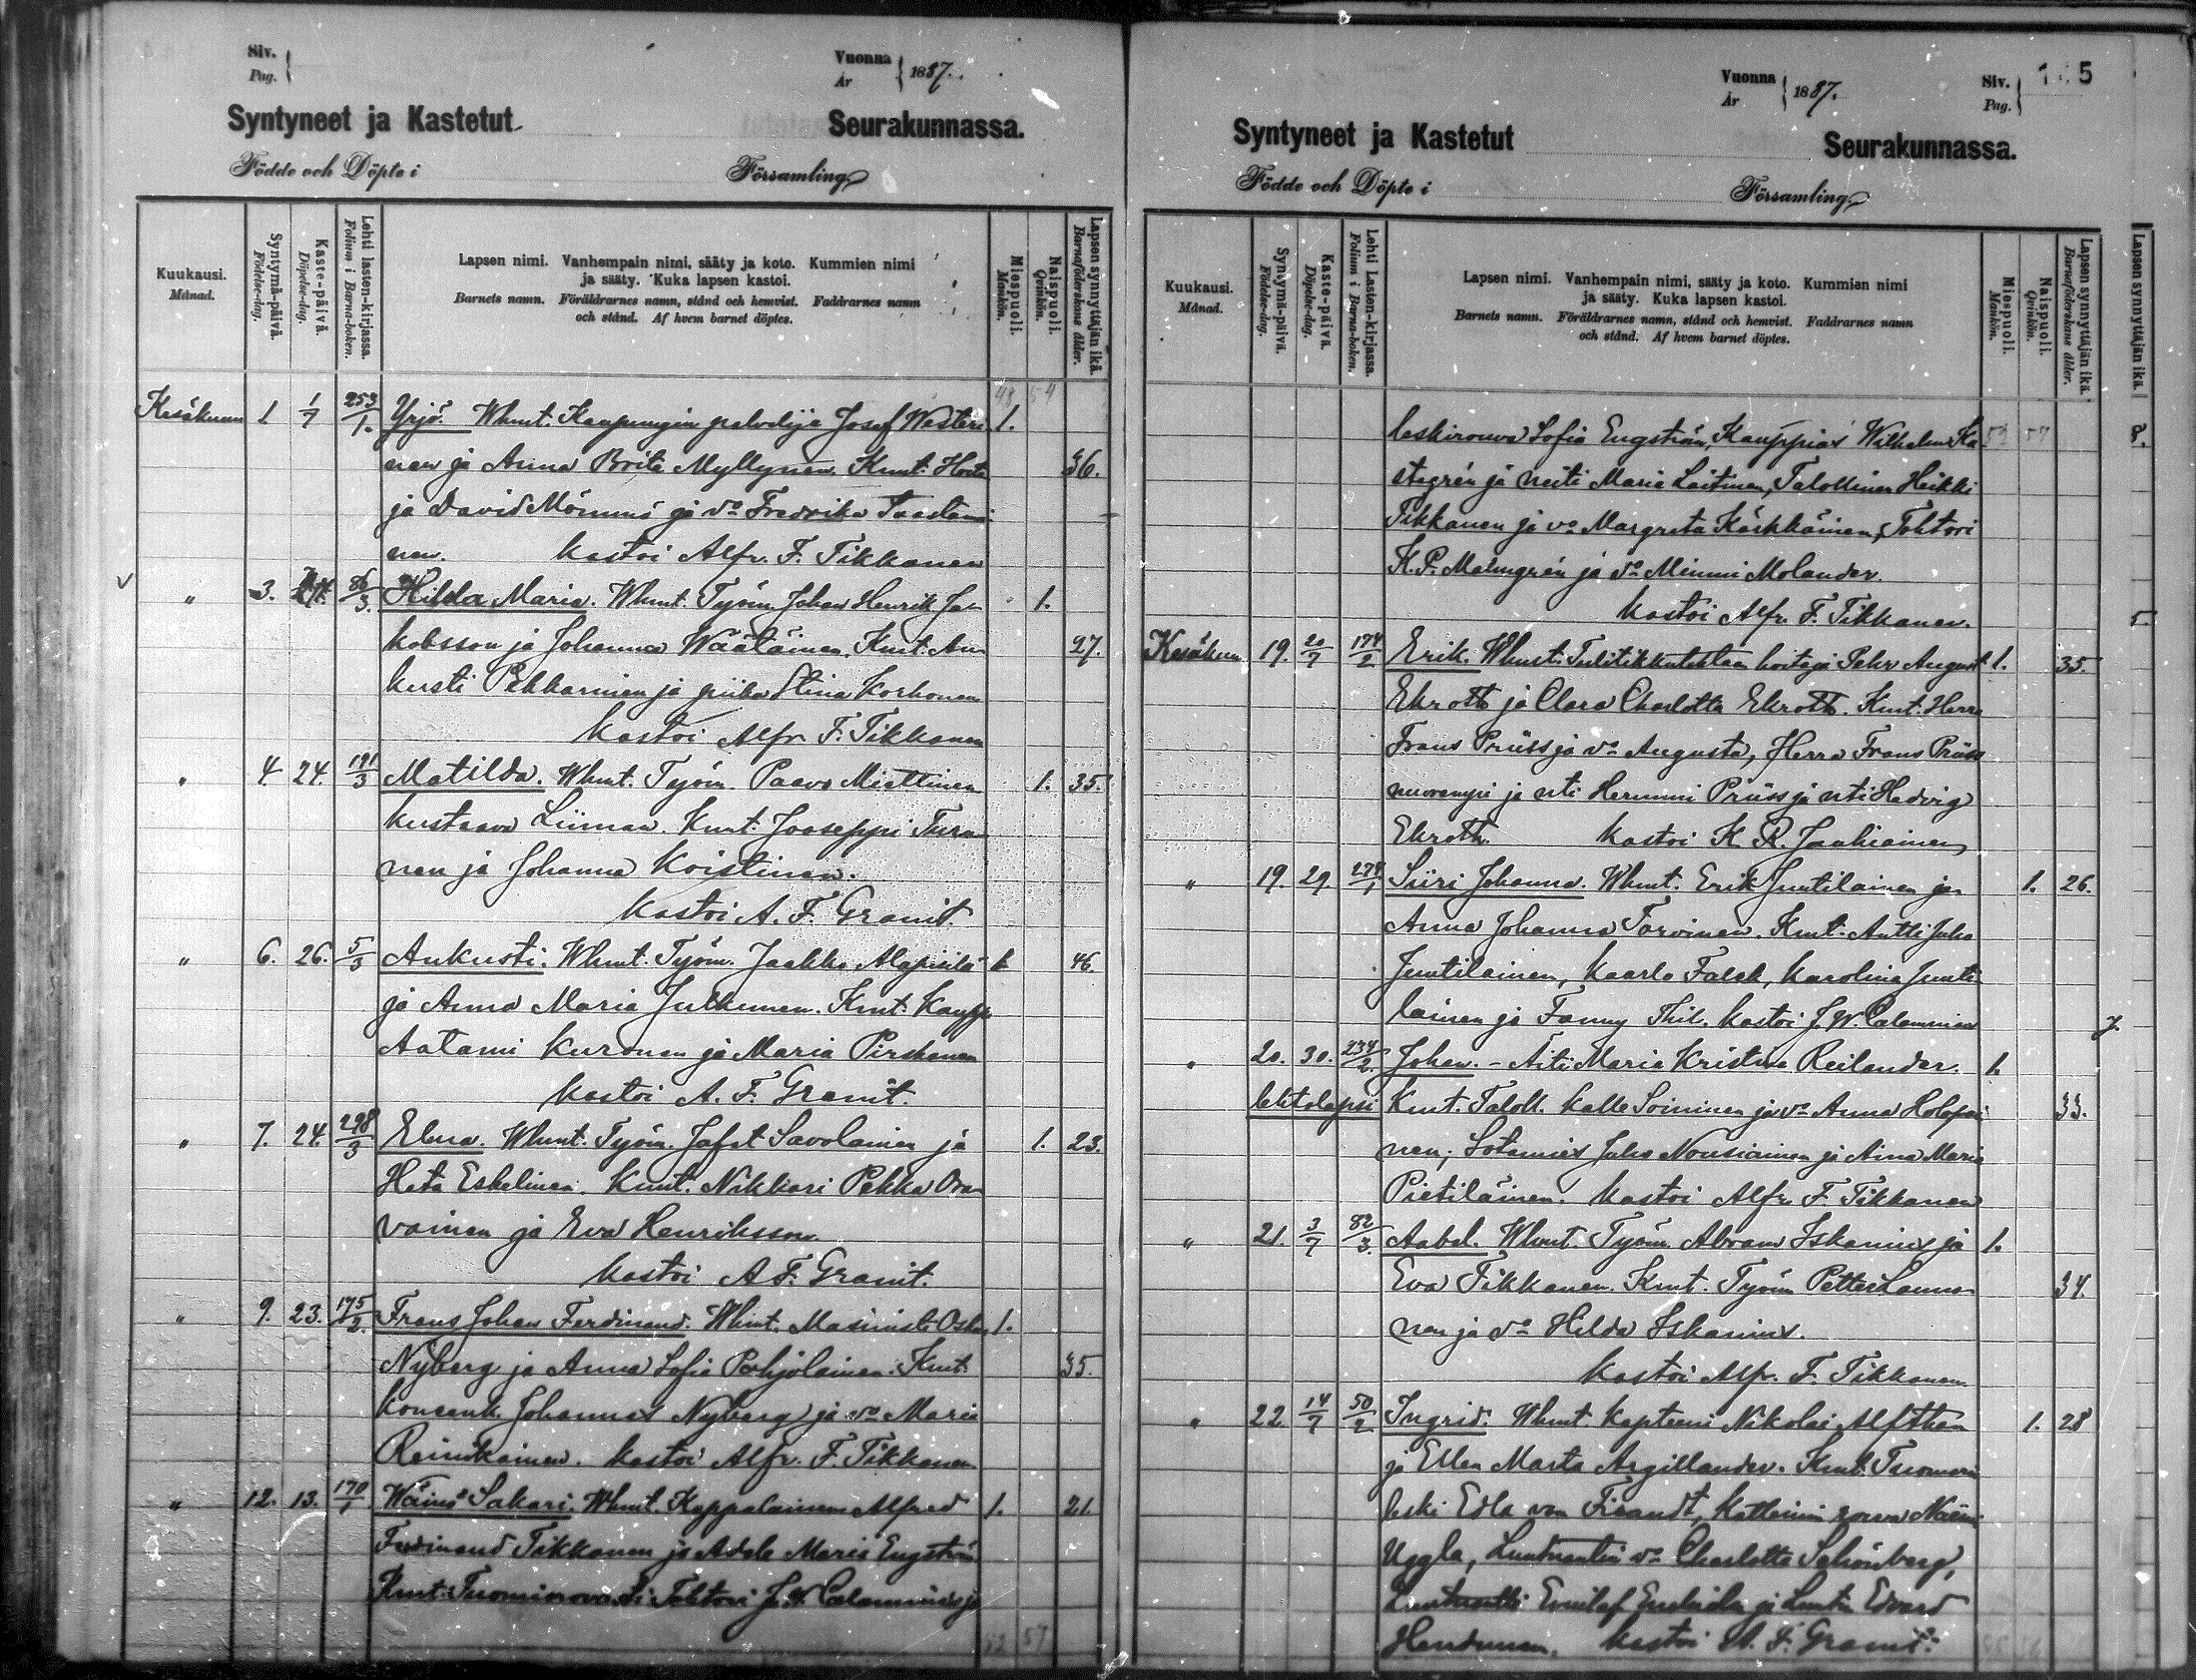 Siv.
Pag.
Vuonna
År
1887.
Syntyneet ja Kastetut
Seurakunnassa.
Födde och Döpte i
Församling
Kuukausi.
Månad.
Syntymä-päivä.
Födelse-dag.
Kaste-päivä.
Döpelse-dag.
Lehti lasten-kirjassa.
Folium i Barna-boken.
Lapsen nimi. Vanhempain nimi, sääty ja koto. Kummien nimi
ja sääty. Kuka lapsen kastoi.
Barnets namn. Föräldrarnes namn, stånd och hemvist. Faddrarnes namn
och stånd. Af hvem barnet döptes.
Miespuoli.
Mankön.
Naispuoli.
Qvinkön.
Lapsen synnyttäjän ikä.
Barnaföderskans ålder.
Kesäkuu 1 1/7 253/1. Yrjö. Whmt. Kaupungin palvelija Josef Westeri 1.
nen ja Anna Brita Myllynen. Kmt. 36.
ja David Mönnus ja vo Fredrika
nen. kastoi Alfr. F. Tikkanen
" 3. 86/3. Hilda Maria. Whmt. Työm. Johan Henrik Ja 1.
kobsson ja Johanna Väätäinen. Kmt. Au 27.
kusti Pekkarinen ja piika Stina Korhonen
kastoi Alfr F. Tikkanen
" 4. 24. 191/3 Matilda. Whmt. Työm. Paavo Miettinen 1. 35.
Kustaava Liiman. Kmt. Jooseppi Turu
nen ja Johanna Koistinen.
kastoi A. F. Granit.
" 6. 26. 5/3 Aukusti. Whmt. Työm. Jaakko Alapirilä 1. 46.
ja Anna Maria Julkunen. Kmt. Kaupp.
Aatami Kuronen ja Maria Pirskanen
kastoi A. F. Granit.
" 7. 24. 298/3 Elma. Whmt. Työm. Jafet Savolainen ja 1. 23.
Heta Eskelinen. Kmt. Nikkari Pekka Ora
vainen ja Eva Henriksson.
kastoi A F. Granit.
" 9. 23. 175/2. Frans Johan Ferdinand. Whmt. Masinisti Oskar 1.
Nyberg ja Anna Sofia Pohjolainen. Kmt. 35.
Johannes Nyberg ja vo Maria
Reinikainen. kastoi Alfr. F. Tikkanen
" 12. 13. 170/1 Wäinö Sakari. Whmt. Kappalainen Alfred 1. 21.
Ferdinand Tikkanen ja Adele Maria Engström
Kmt. Tuomiorovasti Tohtori J. W. Calamnius ja
Vuonna
År
1887.
Siv.
Pag.
5
Syntyneet ja Kastetut
Seurakunnassa.
Födde och Döpte i
Församling
Kuukausi.
Månad.
Syntymä-päivä.
Födelse-dag.
Kaste-päivä.
Döpelse-dag.
Lehti Lasten-kirjassa.
Folium i Barna-boken.
Lapsen nimi. Vanhempain nimi, sääty ja koto. Kummien nimi
ja sääty. Kuka lapsen kastoi.
Barnets namn. Föräldrarnes namn, stånd och hemvist. Faddrarnes namn
och stånd. Af hvem barnet döptes.
Miespuoli.
Mankön.
Naispuoli.
Qvinkön.
Lapsen synnyttäjän ikä.
Barnaföderskans ålder.
Lapsen synnyttäjän ikä.
leskirouva Sofia Engström, Kauppias Wilhelm Ka
stegrén ja neiti Maria Laitinen, Talollinen Heikki
Tikkanen ja vo Margreta Kärkkäinen, Tohtori
K. P. Malmgrén ja vo Minni Molander.
kastoi Alfr. F. Tikkanen.
Kesäkuu 19. 20/7 174/2 Erik. Whmt. Tulitikkutehtaan hoitaja Pehr August 1. 35.
Ekroth ja Clara Charlotta Ekroth. Kmt. Herra
Frans Prüss ja vo Augusta, Herra Frans Prüss
nuorempi ja nti Hemmi Prüss ja nti Hedvig
Ekroth. kastoi K. R. Jauhiainen
" 19. 29. 274/1 Siiri Johanna. Whmt. Erik Juutilainen ja 1. 26.
Anna Johanna Tarvinen. Kmt. Antti Juho
Juutilainen, Kaarlo Falck, Karolina Juuti
lainen ja Fanny Thil. kastoi J. W. Calamnius
" 20. 30. 234/2. Johan. - Äiti Maria Kristina Reilander. 1.
lehtolapsi Kmt. Taloll. Kalle Soininen ja vo Anna Holopai 33.
nen, Sotamies Juho Nousiainen ja Aina Maria
Pietiläinen. kastoi Alfr. F. Tikkanen
" 21. 3/7 82/3. Aabel. Whmt. Työm. Abram Iskanius ja 1.
Eva Tikkanen. Kmt. Työm Petter Launo 34.
nen ja vo Hilda Iskanius.
kastoi Alfr. F. Tikkanen
" 22 14/7 50/2 Ingrid. Whmt. Kapteeni Nikolai Alfthan 1. 28
ja Ellen Marta Argillander. Kmt. Tuomarin
leski Edla von Fieandt, rouva Naëmi
Uggla, Luutnantin vo Charlotta Schönberg,
Luutnantti ja Luutn. Edvard
kastoi A. F. Granit.